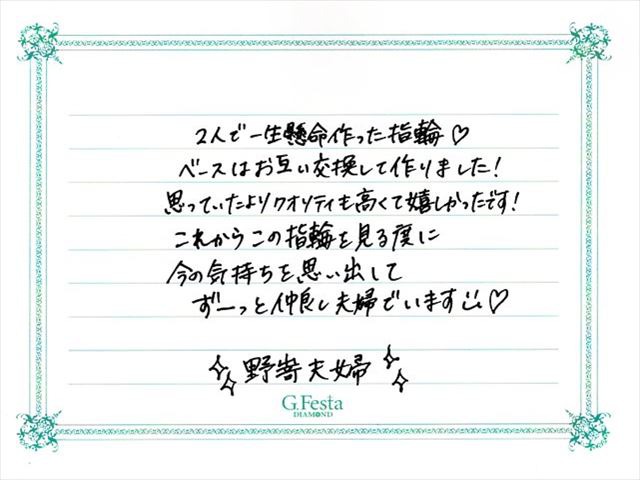 2人で一生懸命作った指輪♡
ベースはお互い交換して作りました!
思っていたよりクオリティも高くて嬉しかったです!
これからこの指輪を見る度に
今の気持ちを思い出して
ずーっと仲良し夫婦でいます♡
野嵜夫婦
G.Festa
DIAMOND